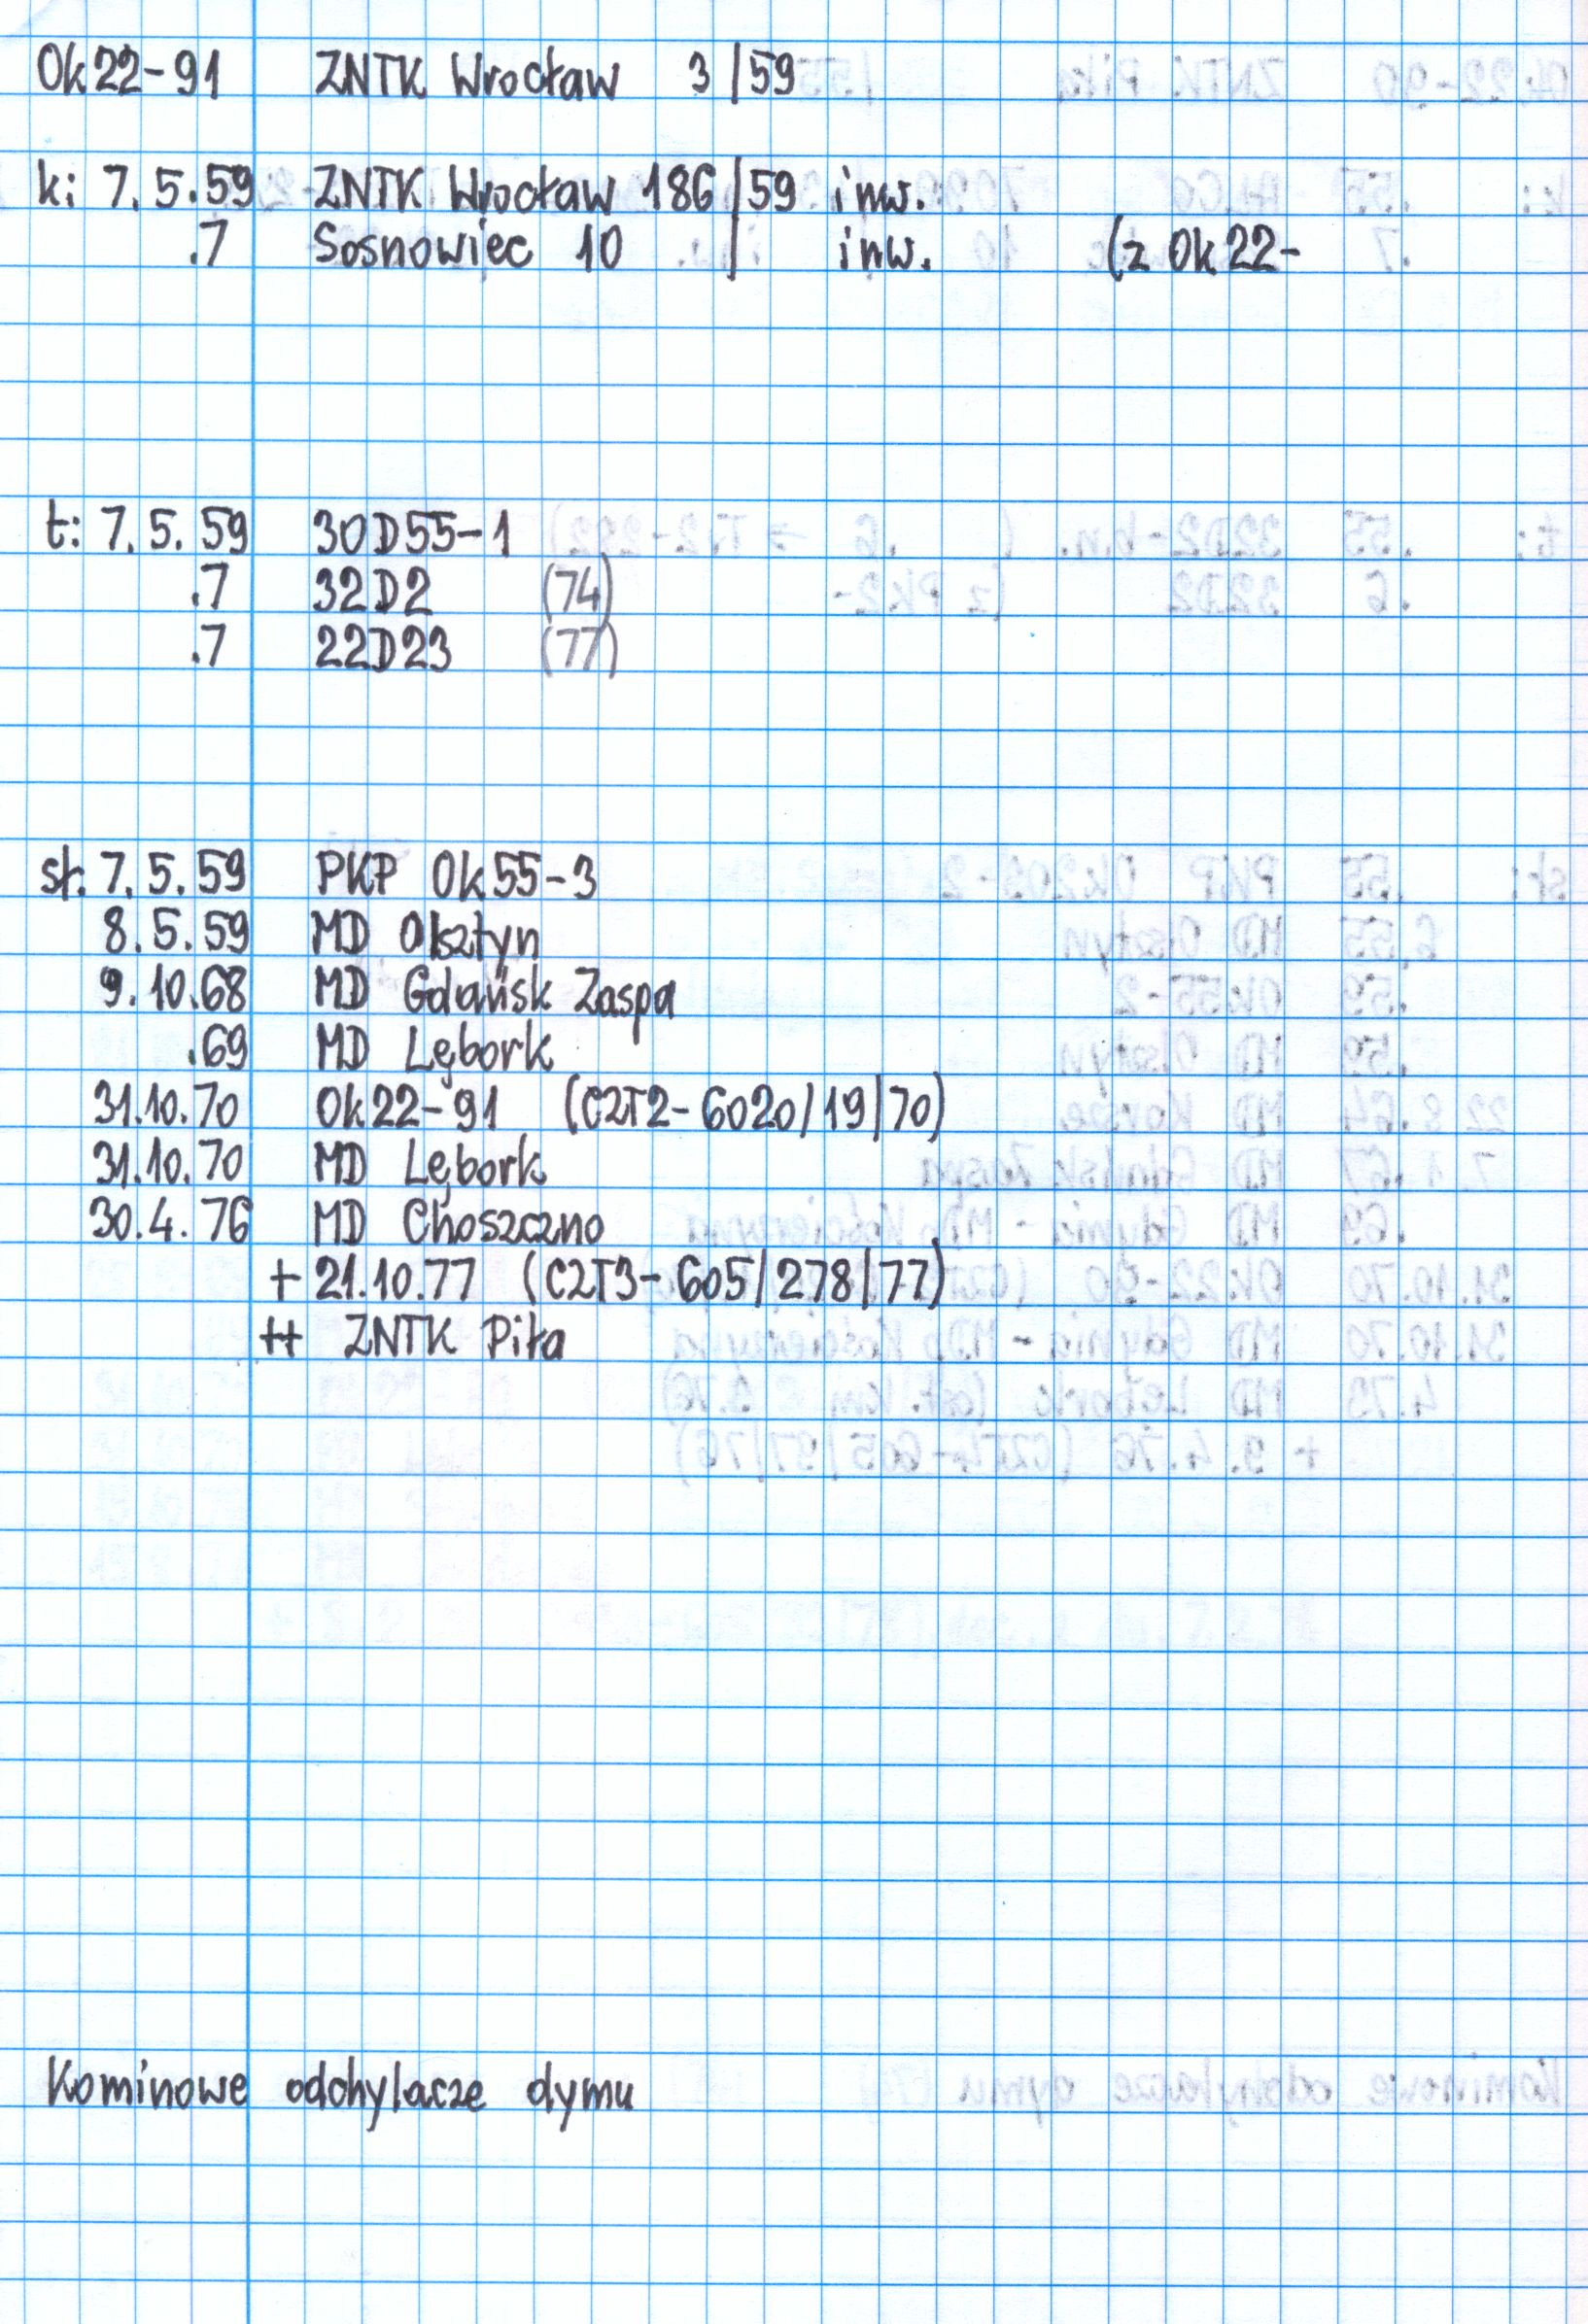 Ok22-91 ZNTK Wrocław 3/59
k: 7.5.59 ZNTK Wrocław 186/59 inw.
.7 Sosnowiec 10 / inw. (z Ok22-
t: 7.5.59 30D55-1
.7 32D2 (74)
.7 22D23 (77)
st. 7.5.59 PKP Ok55-3
8.5.59 MD Olsztyn
9.10.68 MD Gdańsk Zaspa
.69 MD Lębork
31.10.70 Ok22-91 (C2T2-6020/19/70)
31.10.70 MD Lębork
30.4.76 MD Choszczno
+ 21.10.77 (C2T3-605/278/77)
++ ZNTK Piła
Kominowe odchylacze dymu